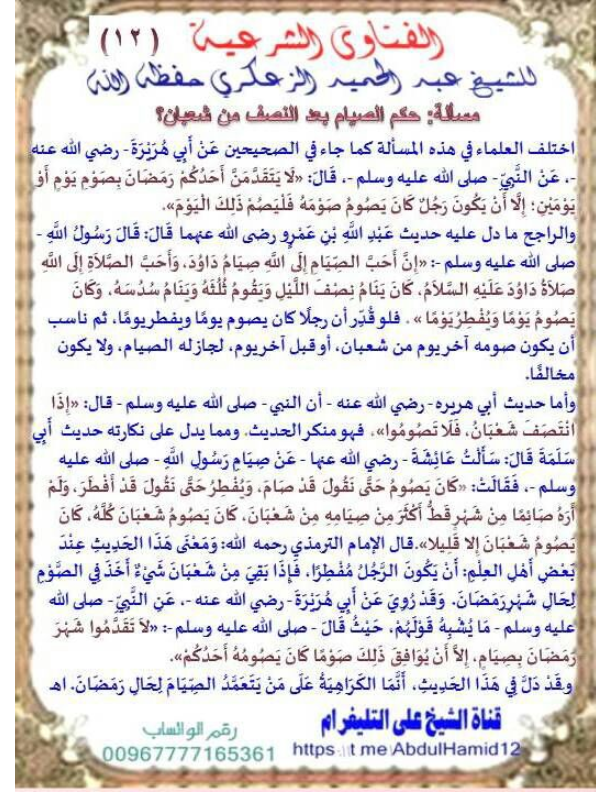 الفتاوى الشرعية (١٢)
للشيخ عبد الحميد الزعكري حفظه الله
مسألة: حكم الصيام بعد النصف من شعبان؟
اختلف العلماء في هذه المسألة كما جاء في الصحيحين عَنْ أَبِي هُرَيْرَةَ - رضي الله عنه
-، عَنْ النَّبِيِّ - صلى الله عليه وسلم -، قَالَ: «لَا يَتَقَدَّمَنَّ أَحَدُكُمْ رَمَضَانَ بِصَوْمِ يَوْمٍ أَوْ
يَوْمَيْنِ؛ إِلَّا أَنْ يَكُونَ رَجُلٌ كَانَ يَصُومُ صَوْمَهُ فَلْيَصُمْ ذَلِكَ الْيَوْمَ».
والراجح ما دل عليه حديث عَبْدِ اللَّهِ بْنِ عَمْرٍو رضى الله عنهما قَالَ: قَالَ رَسُولُ اللَّهِ -
صلى الله عليه وسلم -: «إِنَّ أَحَبَّ الصِّيَامِ إِلَى اللَّهِ صِيَامُ دَاوُدَ، وَأَحَبَّ الصَّلَاةِ إِلَى اللَّهِ
صَلَاةُ دَاوُدَ عَلَيْهِ السَّلَامُ، كَانَ يَنَامُ نِصْفَ اللَّيْلِ وَيَقُومُ ثُلُثَهُ وَيَنَامُ سُدُسَهُ، وَكَانَ
يَصُومُ يَوْمًا وَيُفْطِرُ يَوْمًا» . فلو قُدِّر أن رجلًا كان يصوم يومًا ويفطر يومًا، ثم ناسب
أن يكون صومه آخر يوم من شعبان، أو قبل آخر يوم، لجاز له الصيام، ولا يكون
مخالفًا.
وأما حديث أبي هريره - رضي الله عنه - أن النبي - صلى الله عليه وسلم - قال: «إِذَا
انْتَصَفَ شَعْبَانُ، فَلَا تَصُومُوا»، فهو منكر الحديث. ومما يدل على نكارته حديث أَبِي
سَلَمَةَ قَالَ: سَأَلْتُ عَائِشَةَ - رضي الله عنها - عَنْ صِيَامِ رَسُولِ اللَّهِ - صلى الله عليه
وسلم -، فَقَالَتْ: «كَانَ يَصُومُ حَتَّى نَقُولَ قَدْ صَامَ، وَيُفْطِرُ حَتَّى نَقُولَ قَدْ أَفْطَرَ، وَلَمْ
أَرَهُ صَائِمًا مِنْ شَهْرٍ قَطُّ أَكْثَرَ مِنْ صِيَامِهِ مِنْ شَعْبَانَ، كَانَ يَصُومُ شَعْبَانَ كُلَّهُ، كَانَ
يَصُومُ شَعْبَانَ إِلا قَلِيلا».قال الإمام الترمذي رحمه الله: وَمَعْنَى هَذَا الْحَدِيثِ عِنْدَ
بَعْضِ أَهْلِ الْعِلْمِ: أَنْ يَكُونَ الرَّجُلُ مُفْطِرًا، فَإِذَا بَقِيَ مِنْ شَعْبَانَ شَيْءٌ أَخَذَ فِي الصَّوْمِ
لِحَالِ شَهْرِ رَمَضَانَ. وَقَدْ رُوِيَ عَنْ أَبِي هُرَيْرَةَ - رضي الله عنه -، عَنِ النَّبِيِّ - صلى الله
عليه وسلم - مَا يُشْبِهُ قَوْلَهُمْ، حَيْثُ قَالَ - صلى الله عليه وسلم -: «لَا تَقَدَّمُوا شَهْرَ
رَمَضَانَ بِصِيَامٍ، إِلَّا أَنْ يُوَافِقَ ذَلِكَ صَوْمًا كَانَ يَصُومُهُ أَحَدُكُمْ».
وقَدْ دَلَّ فِي هَذَا الْحَدِيثِ، أَنَّمَا الْكَرَاهِيَةُ عَلَى مَنْ يَتَعَمَّدُ الصِّيَامَ لِحَالِ رَمَضَانَ. اهـ
قناة الشيخ على التليغرام
https://t.me/AbdulHamid12
رقم الواتساب
00967777165361